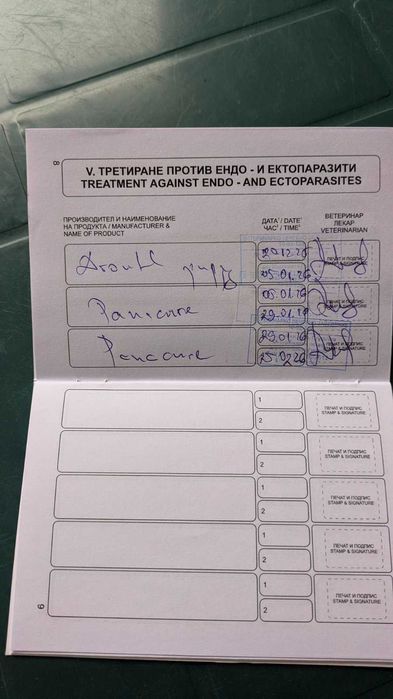 8
V. ТРЕТИРАНЕ ПРОТИВ ЕНДО - И ЕКТОПАРАЗИТИ
TREATMENT AGAINST ENDO - AND ECTOPARASITES
ПРОИЗВОДИТЕЛ И НАИМЕНОВАНИЕ
НА ПРОДУКТА / MANUFACTURER &
NAME OF PRODUCT
ДАТА¹ / DATE¹
ЧАС² / TIME²
ВЕТЕРИНАР
ЛЕКАР
VETERINARIAN
puppy
05.01.26
05.01.26
Panacure
29.01.26
Panacure
1
2
ПЕЧАТ И ПОДПИС
STAMP & SIGNATURE
1
2
ПЕЧАТ И ПОДПИС
STAMP & SIGNATURE
1
2
ПЕЧАТ И ПОДПИС
STAMP & SIGNATURE
1
2
ПЕЧАТ И ПОДПИС
STAMP & SIGNATURE
1
2
ПЕЧАТ И ПОДПИС
STAMP & SIGNATURE
9